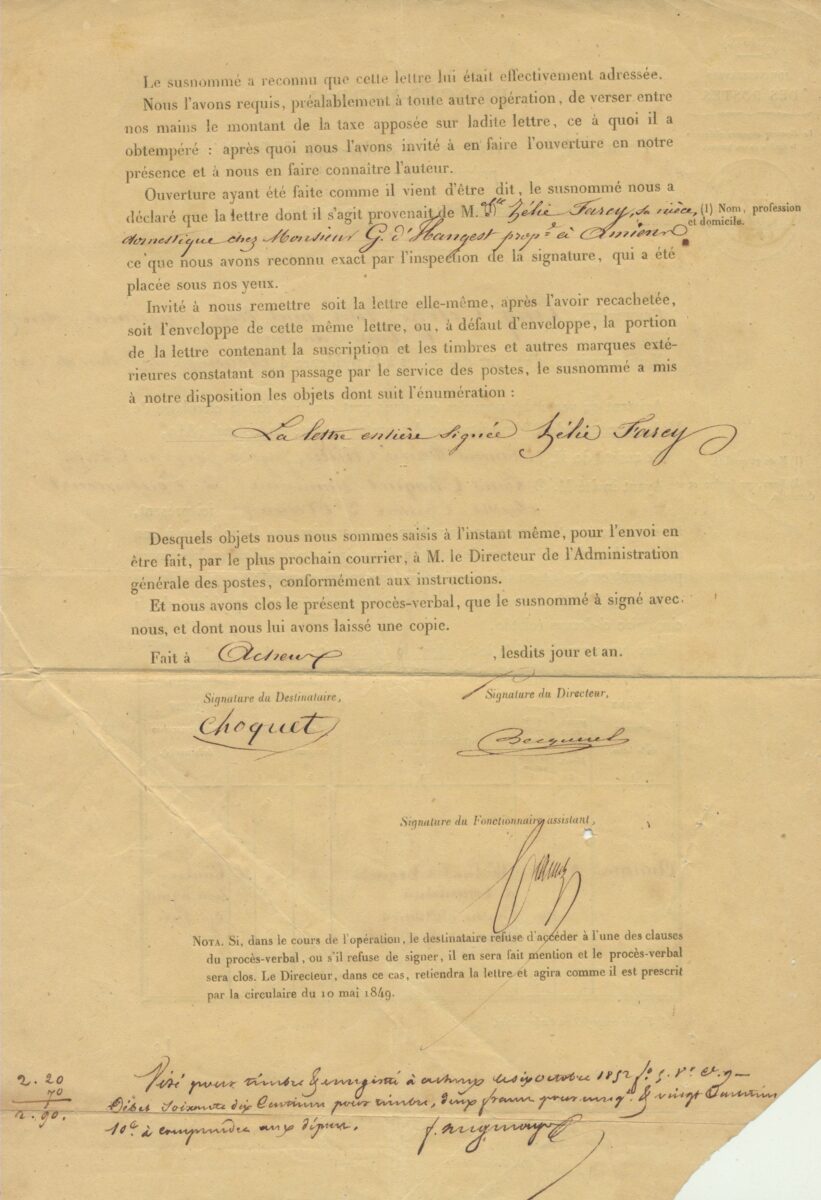 Le susnommé a reconnu que cette lettre lui était effectivement adressée.
Nous l'avons requis, préalablement à toute autre opération, de verser entre
nos mains le montant de la taxe apposée sur ladite lettre, ce à quoi il a
obtempéré : après quoi nous l'avons invité à en faire l'ouverture en notre
présence et à nous en faire connaître l'auteur.
Ouverture ayant été faite comme il vient d'être dit, le susnommé nous a
déclaré que la lettre dont il s'agit provenait de M. elle Zélie Farcy, sa nièce,
(1) Nom, profession
et domicile.
domestique chez Monsieur G. d'Hangest prop.re à Amiens
ce que nous avons reconnu exact par l'inspection de la signature, qui a été
placée sous nos yeux.
Invité à nous remettre soit la lettre elle-même, après l'avoir recachetée,
soit l'enveloppe de cette même lettre, ou, à défaut d'enveloppe, la portion
de la lettre contenant la suscription et les timbres et autres marques exté-
rieures constatant son passage par le service des postes, le susnommé a mis
à notre disposition les objets dont suit l'énumération :
La lettre entière signée Zélie Farcy
Desquels objets nous nous sommes saisis à l'instant même, pour l'envoi en
être fait, par le plus prochain courrier, à M. le Directeur de l'Administration
générale des postes, conformément aux instructions.
Et nous avons clos le présent procès-verbal, que le susnommé à signé avec
nous, et dont nous lui avons laissé une copie.
Fait à Acheux , lesdits jour et an.
Signature du Destinataire,
Signature du Directeur,
Choquet
Signature du Fonctionnaire assistant,
NOTA. Si, dans le cours de l'opération, le destinataire refuse d'accéder à l'une des clauses
du procès-verbal, ou s'il refuse de signer, il en sera fait mention et le procès-verbal
sera clos. Le Directeur, dans ce cas, retiendra la lettre et agira comme il est prescrit
par la circulaire du 10 mai 1849.
2. 20
70
2. 90.
Visé pour timbre & enregistré à acheux le six octobre 1852 f.o 5. V.o C. 9
Débet soixante dix Centimes pour timbre, deux francs pour enreg.t & vingt Centimes
10e à comprendre aux dépens.